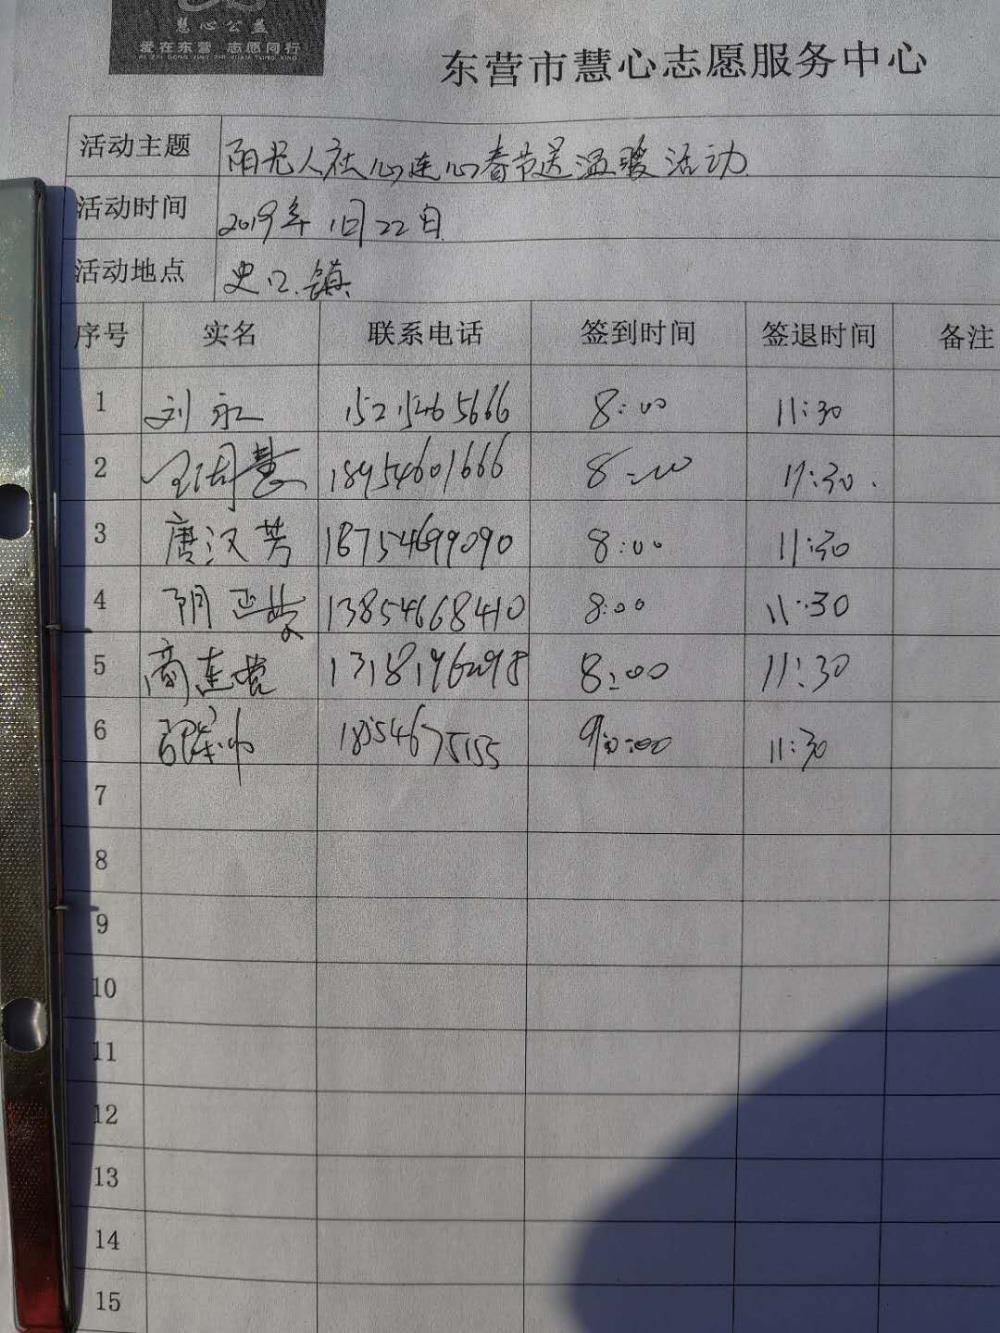 慧心公益
爱在东营 志愿同行
东营市慧心志愿服务中心
活动主题 阳光人社心连心春节送温暖活动
活动时间 2019年1月22日
活动地点 史口镇
序号 实名 联系电话 签到时间 签退时间 备注
1 刘永 15215465666 8:00 11:30
2 18954601666 8:00 11:30.
3 唐汉芳 18754699090 8:00 11:30
4 13854668410 8:00 11:30
5 商连营 8:00 11:30
6 18554675155 11:30
7
8
9
10
11
12
13
14
15